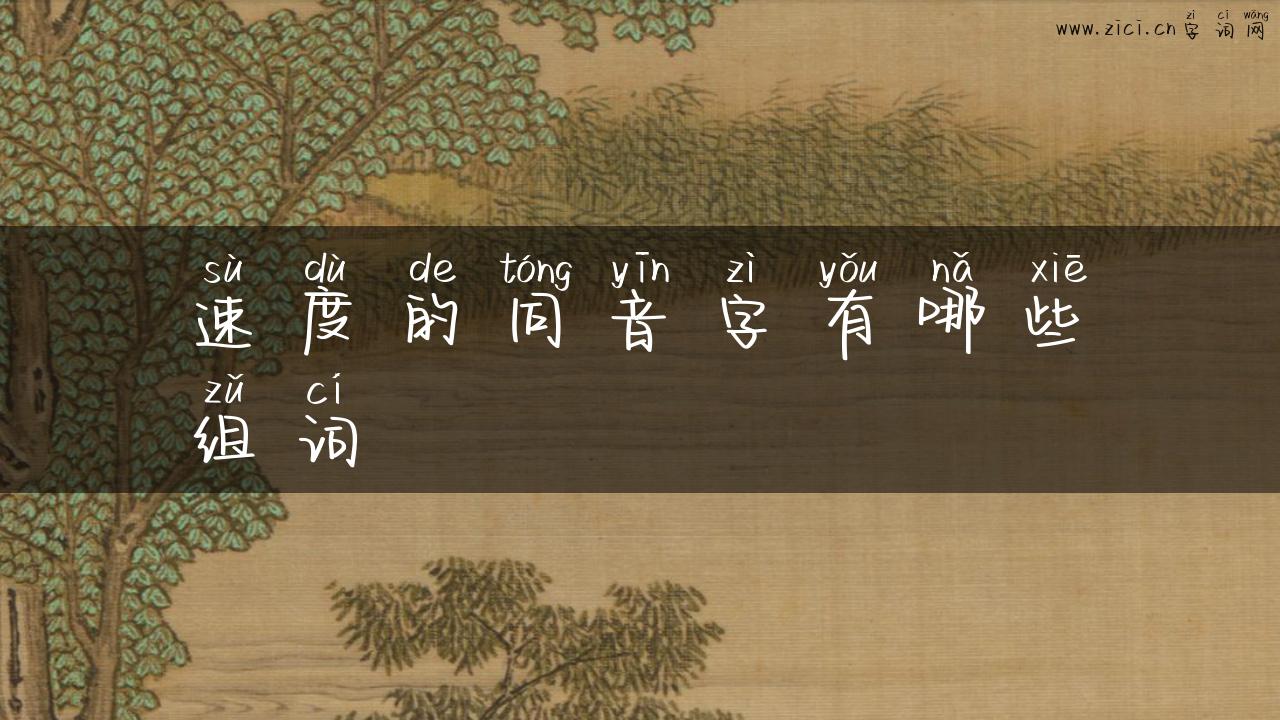 zì cí wǎng
www.zici.cn字词网
sù dù de tóng yīn zì yǒu nǎ xiē
速度的同音字有哪些
zǔ cí
组词